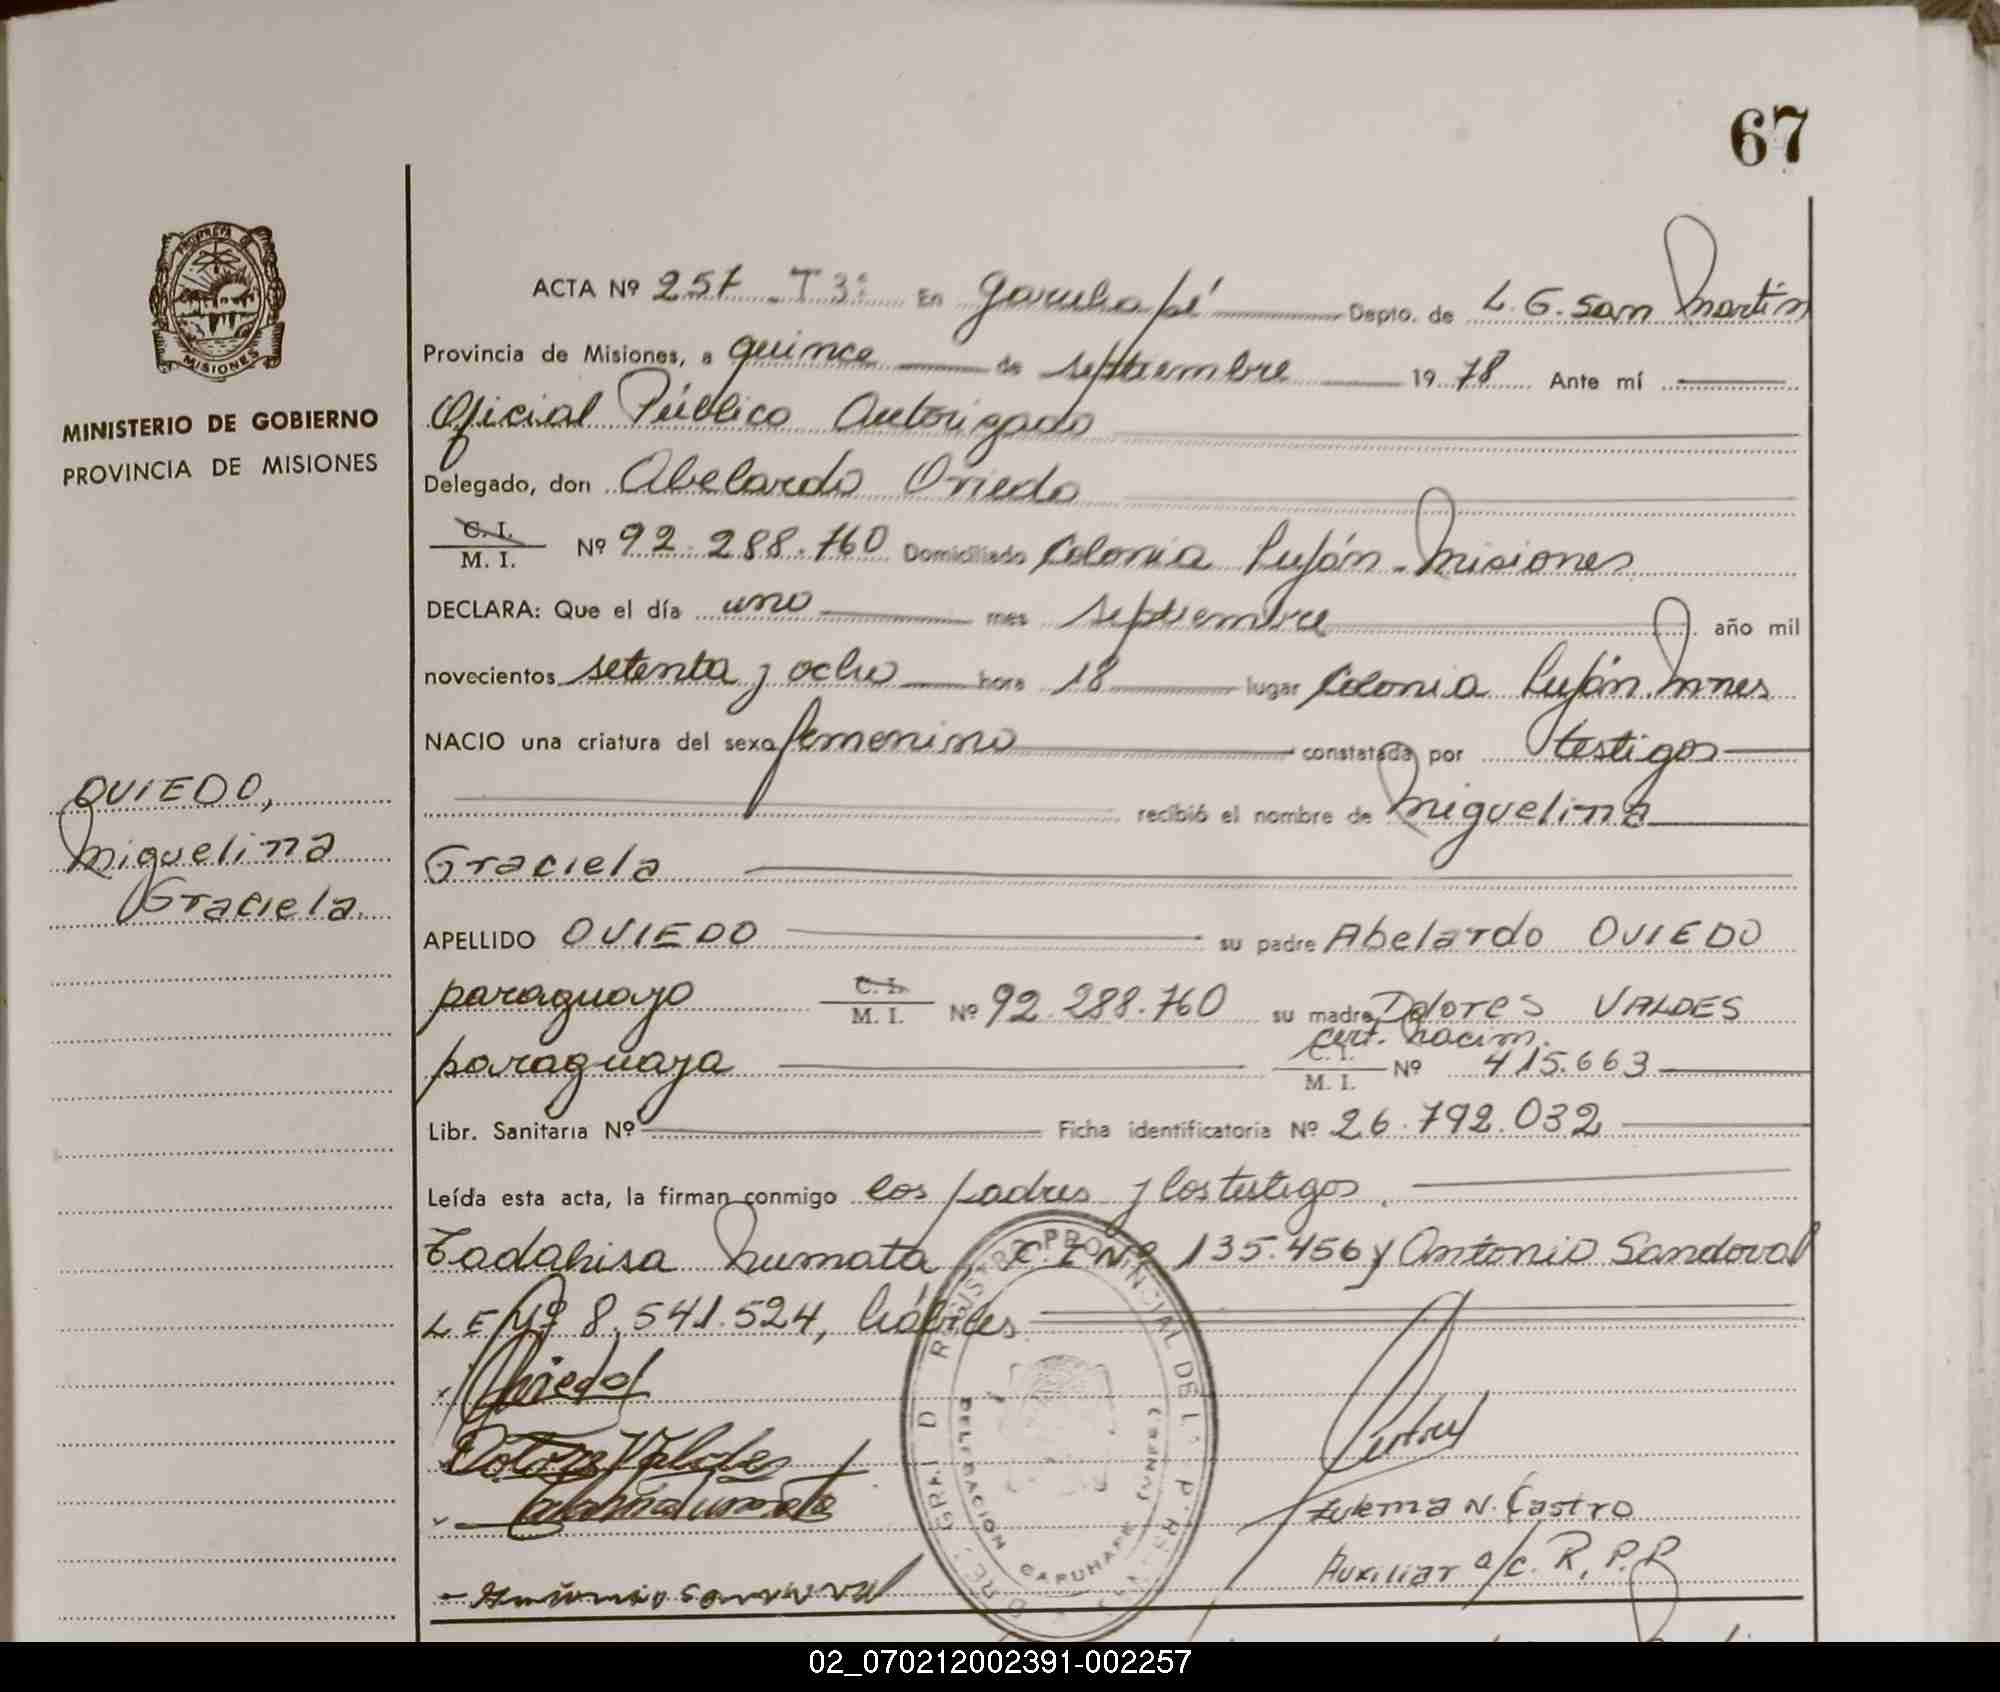 67
ACTA Nº 257 - T 3º En Garuhapé Depto. de L. G. San Martín
Provincia de Misiones, a quince de septiembre 1978 Ante mí
Oficial Público Autorizado
Delegado, don Abelardo Oviedo
C. I.
M. I. Nº 92.288.760 Domiciliado Colonia Luján - Misiones
DECLARA: Que el día uno mes septiembre año mil
novecientos setenta y ocho hora 18 lugar Colonia Luján. Mnes
NACIO una criatura del sexo femenino constatada por testigos
recibió el nombre de Miguelina
Graciela
APELLIDO OVIEDO su padre Abelardo OVIEDO
paraguayo C. I. M. I. Nº 92.288.760 su madre Dolores VALDES
paraguaya cert. nacim. C. I. M. I. Nº 415.663
Libr. Sanitaria Nº Ficha identificatoria Nº 26.792.032
Leída esta acta, la firman conmigo los padres y los testigos.
Tadahisa Numata, C. I Nº 135.456 y Antonio Sandoval
L E Nº 8.541.524, hábiles
Oviedo
Dolores Valdes
Antonio Sandoval
Zulema N. Castro
Auxiliar a/c. R. P. P
REGISTRO PROVINCIAL DE LAS PERSONAS
DELEGACION GARUHAPE (MNES.)
PROVINCIA DE
MISIONES
MINISTERIO DE GOBIERNO
PROVINCIA DE MISIONES
OVIEDO,
Miguelina
Graciela.
02_070212002391-002257